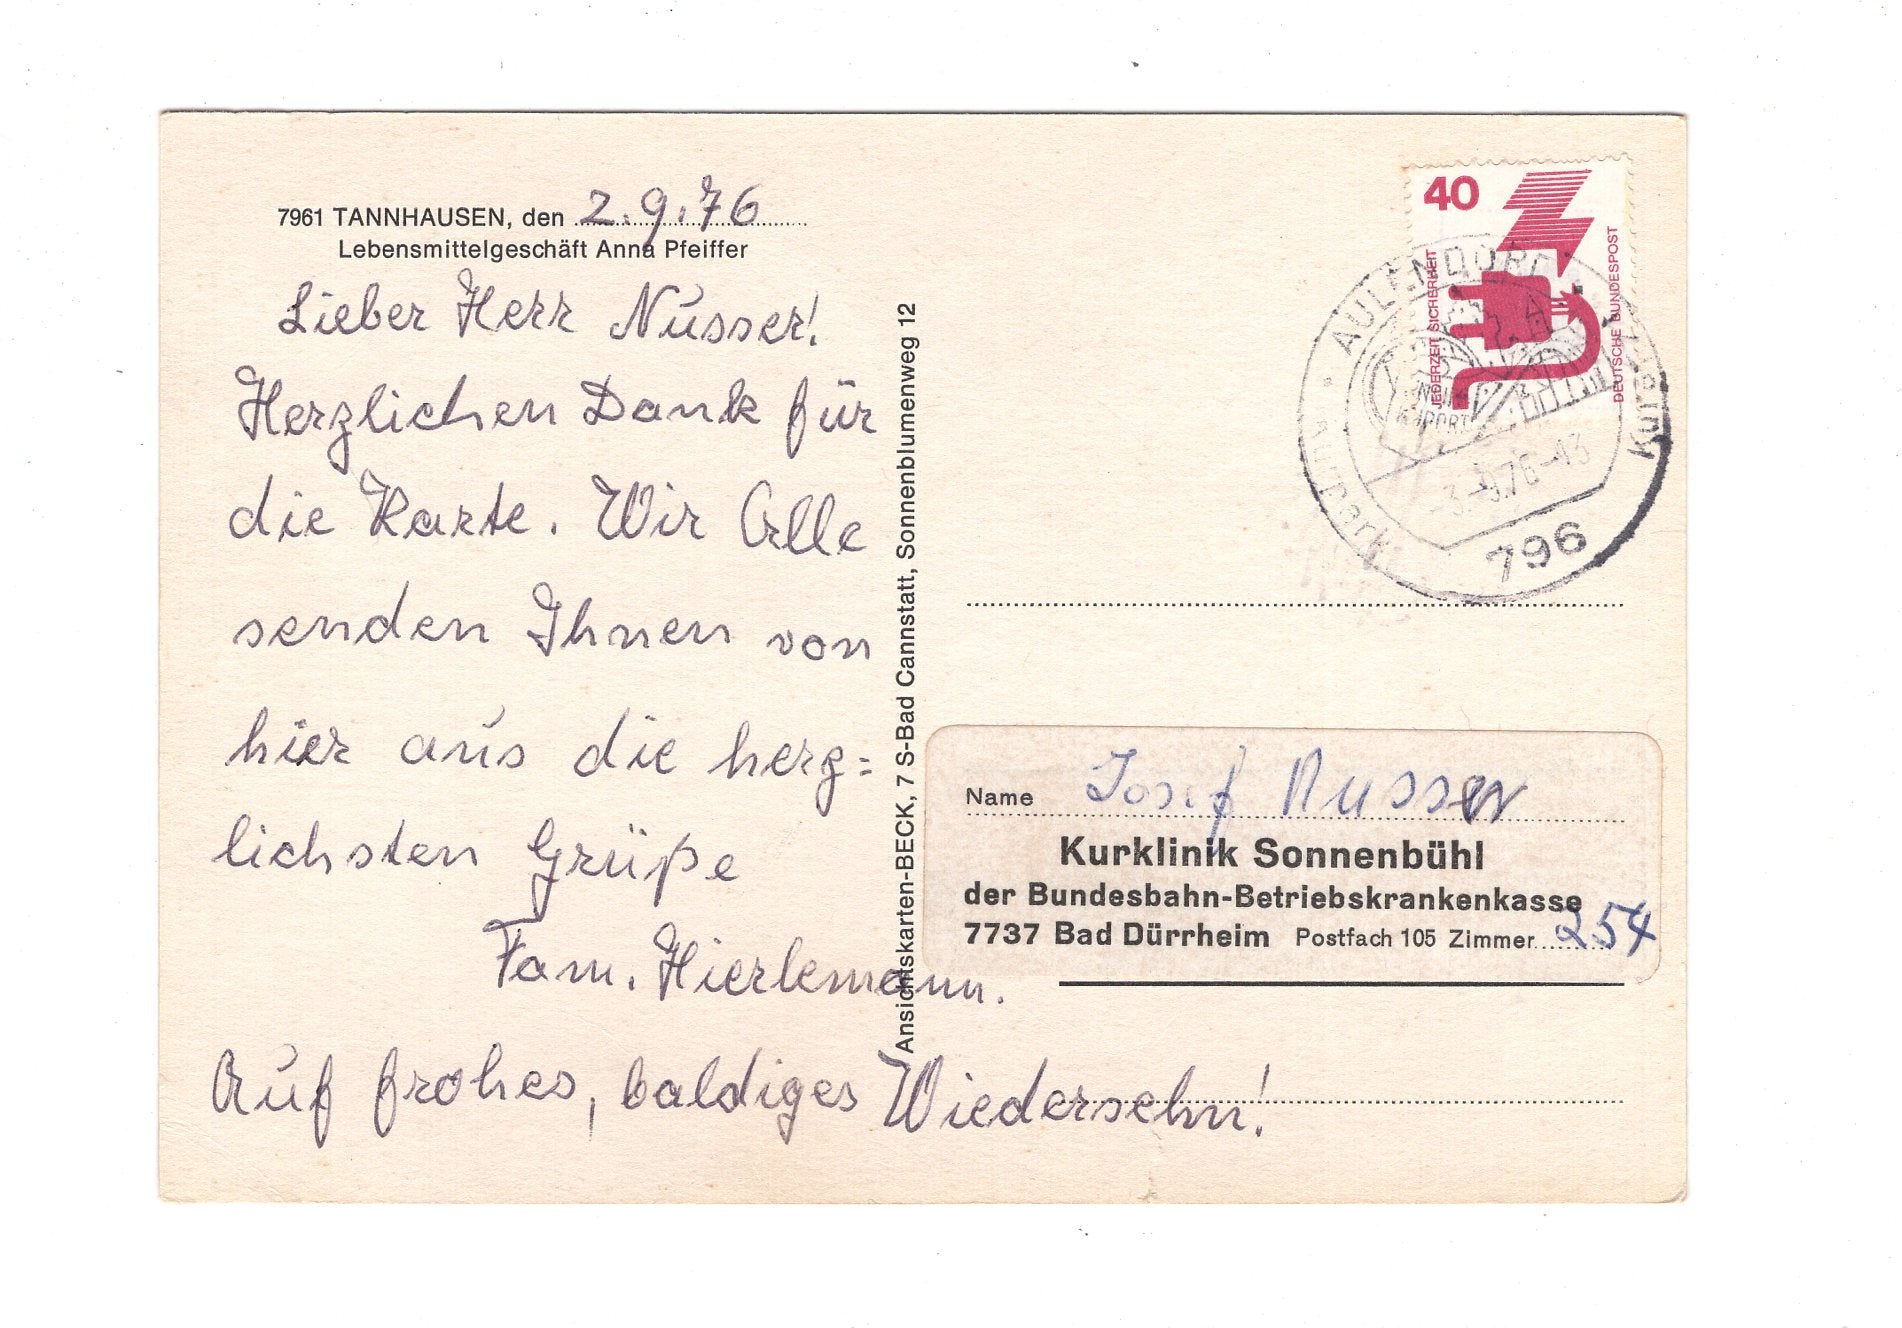 7961 TANNHAUSEN, den 2.9.76
Lebensmittelgeschäft Anna Pfeiffer
Lieber Herr Nusser!
Herzlichen Dank für
die Karte. Wir Alle
senden Ihnen von
hier aus die herz=
lichsten Grüße
Fam. Hierlemann.
Auf frohes, baldiges Wiedersehn!
Ansichtskarten-BECK, 7 S-Bad Cannstatt, Sonnenblumenweg 12
40
JEDERZEIT SICHERHEIT
DEUTSCHE BUNDESPOST
AULENDORF
796
Name Josef Nusser
Kurklinik Sonnenbühl
der Bundesbahn-Betriebskrankenkasse
7737 Bad Dürrheim Postfach 105 Zimmer 254